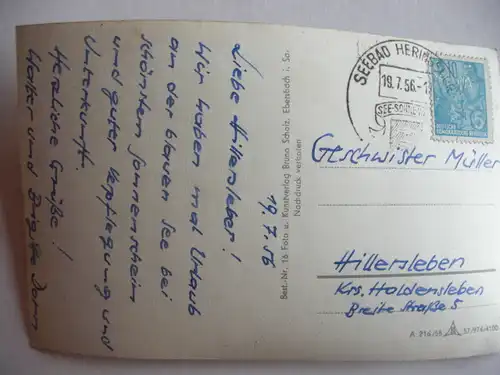 19.7.56
Liebe Hillersleber!
Wir haben mal Urlaub
an der blauen See bei
schönstem Sonnenschein
und guter Verpflegung und
Unterkunft.
Herzliche Grüße!
Walter und Brigitte Dorn
Best.-Nr. 16 Foto u. Kunstverlag Bruno Scholz, Ebersbach i. Sa.
Nachdruck verboten
SEEBAD HERINGSDORF
19.7.56.-1
Geschwister Müller
Hillersleben
Krs. Haldensleben
Breite Straße 5